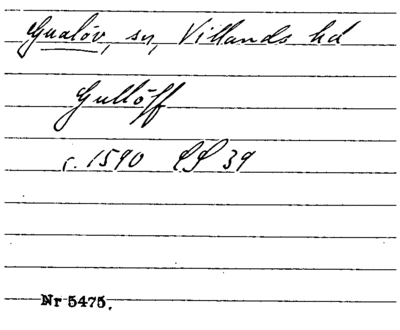 Gualöv, sn, Villands hd
Gullöff
c. 1590 39
Nr 5475.